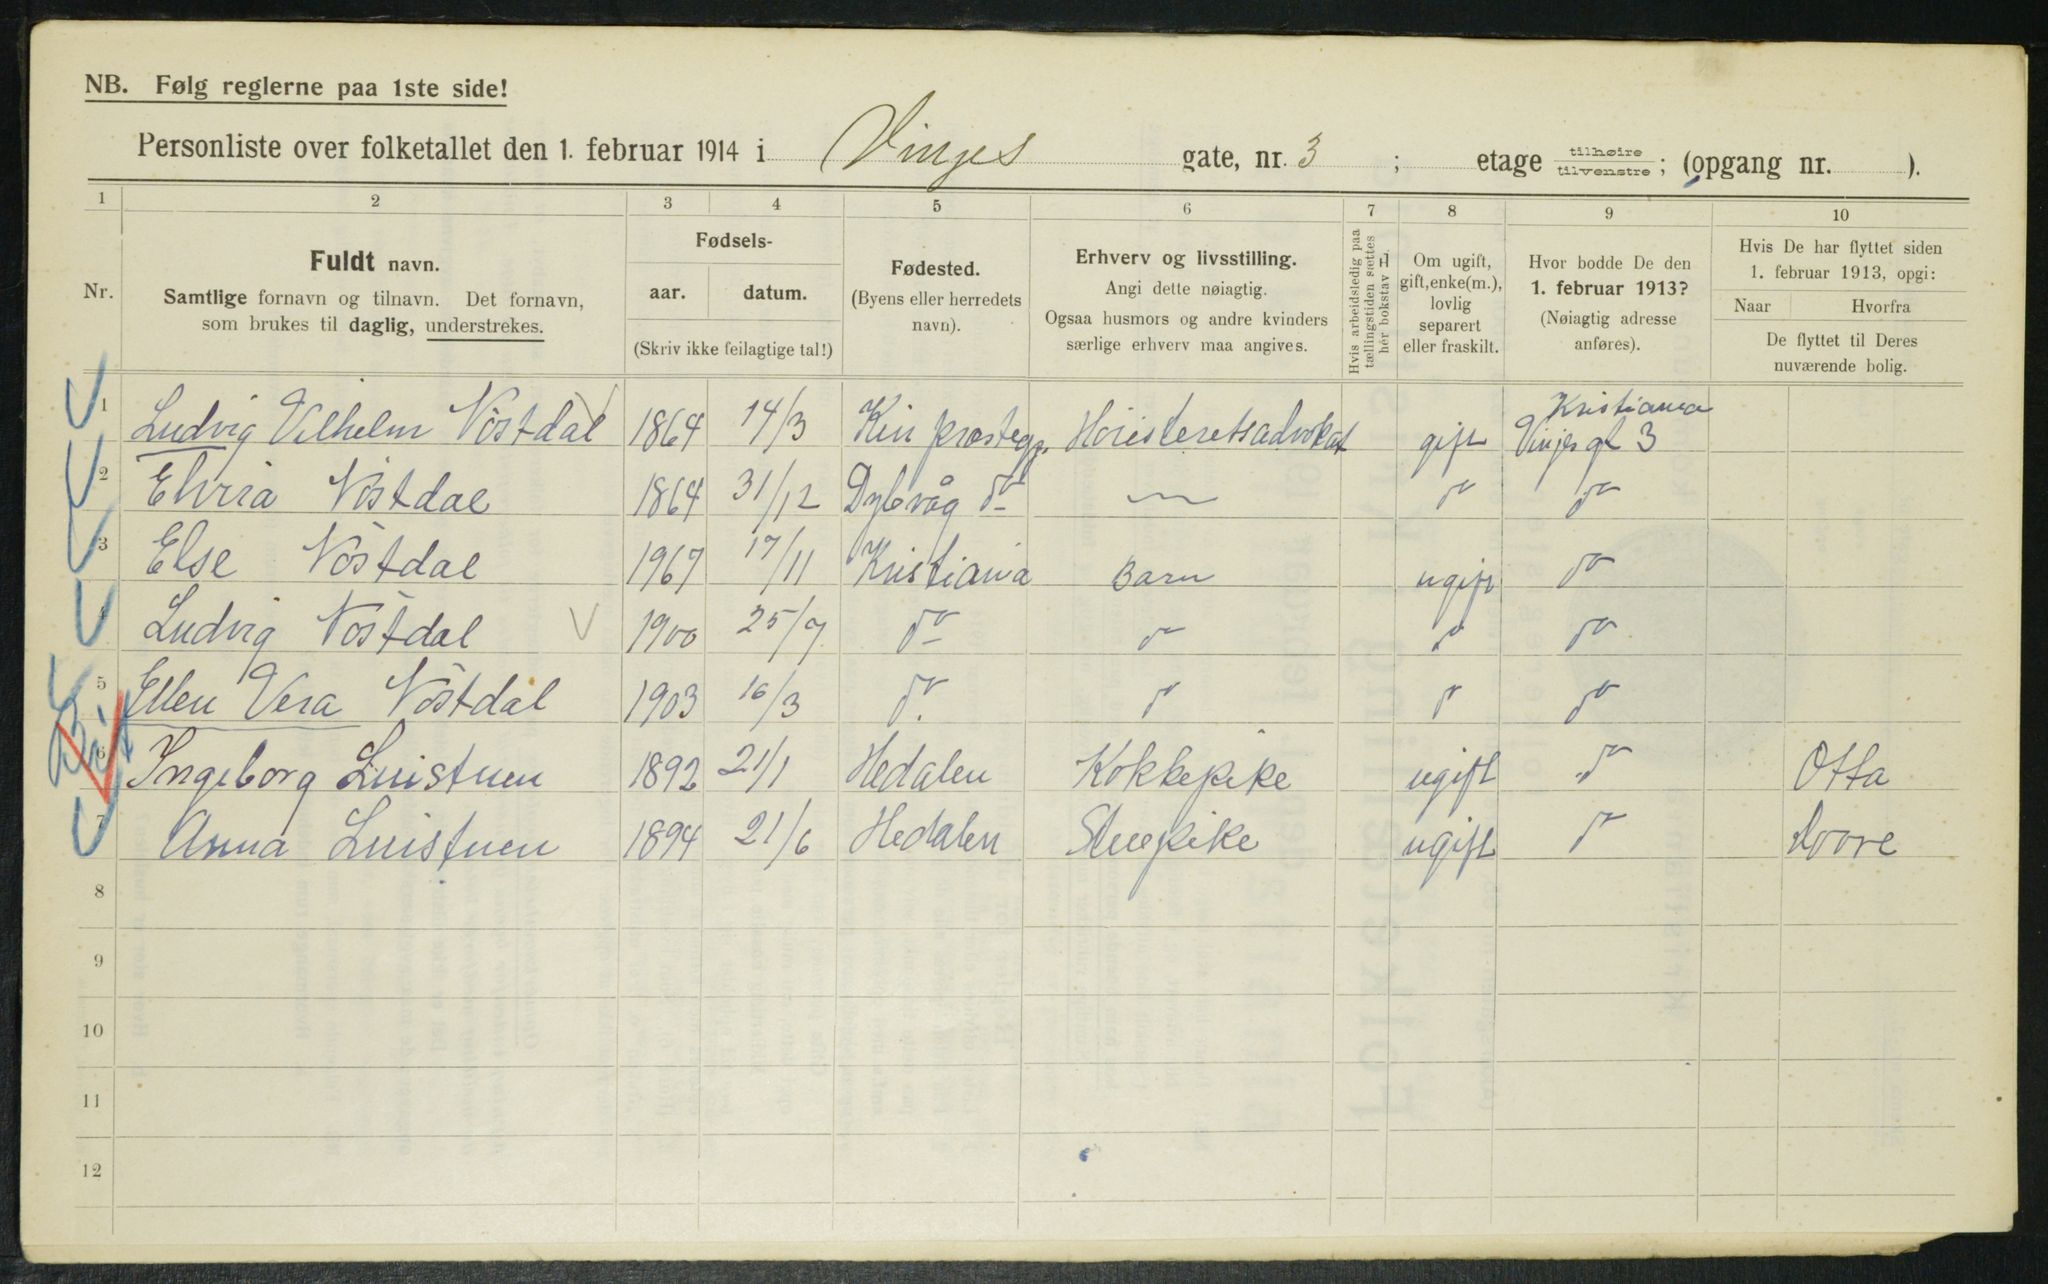 NB. Følg reglerne paa 1ste side!
Personliste over folketallet den 1. februar 1914 i Vinjes gate, nr. 3 ; etage tilhøire tilvenstre; (opgang nr. ).
1 2 3 4 5 6 7 8 9 10
Nr.
Fuldt navn.
Samtlige fornavn og tilnavn. Det fornavn,
som brukes til daglig, understrekes.
Fødsels-
aar. datum.
(Skriv ikke feilagtige tal!)
Fødested.
(Byens eller herredets
navn).
Erhverv og livsstilling.
Angi dette nøiagtig.
Ogsaa husmors og andre kvinders
særlige erhverv maa angives.
Hvis arbeidsledig paa
tællingstiden sættes
her bokstav L
Om ugift,
gift, enke(m.),
lovlig
separert
eller fraskilt.
Hvor bodde De den
1. februar 1913?
(Nøiagtig adresse
anføres).
Hvis De har flyttet siden
1. februar 1913, opgi:
Naar Hvorfra
De flyttet til Deres
nuværende bolig.
1 Ludvig Vilhelm Nöstdal 1864 14/3 Kin præstegj. Höiesteretsadvokat gift Kristiania Vinjes gt 3
2 Elvira Nöstdal 1864 31/12 Dybvåg do — do do
3 Else Nöstdal 1967 17/11 Kristiania Barn ugift do
4 Ludvig Nöstdal 1900 25/7 do do do do
5 Ellen Vera Nöstdal 1903 16/3 do do do do
6 Ingeborg 1892 21/1 Hedalen Kokkepike ugift do Otta
7 Anna 1894 21/6 Hedalen Stuepike ugift do Dovre
8
9
10
11
12